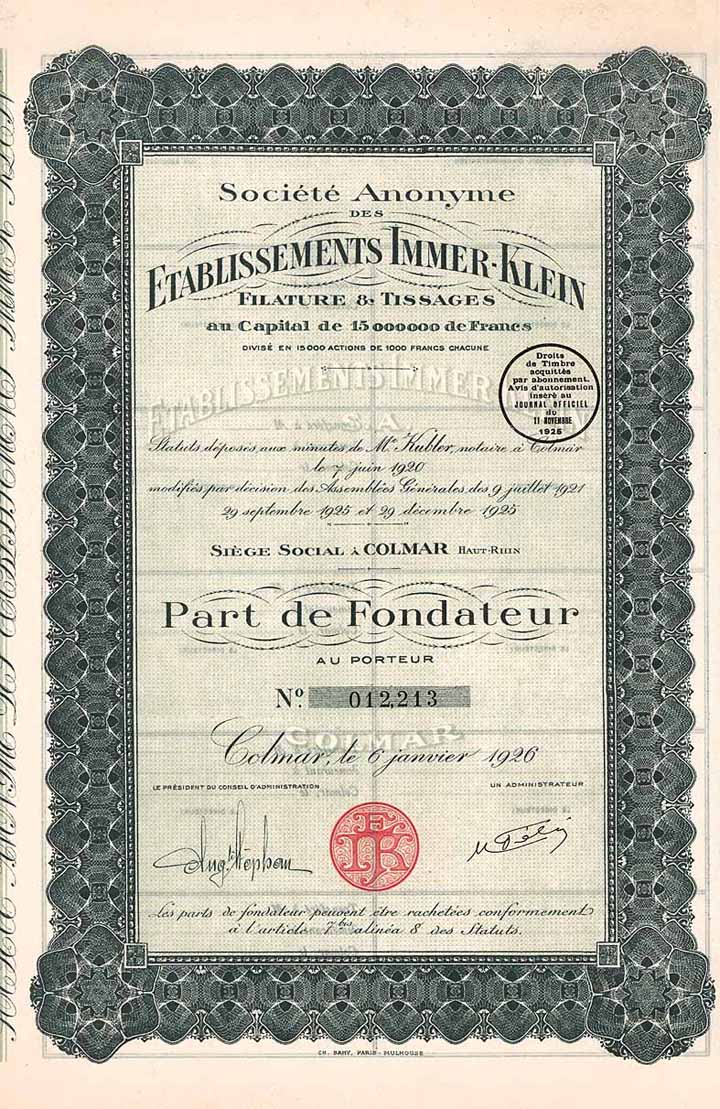 Société Anonyme
DES
ETABLISSEMENTS IMMER-KLEIN
FILATURE & TISSAGES
au Capital de 15 000 000 de Francs
DIVISÉ EN 15 000 ACTIONS DE 1000 FRANCS CHACUNE
Droits
de Timbre
acquittés
par abonnement.
Avis d'autorisation
inséré au
JOURNAL OFFICIEL
du
11 NOVEMBRE
1925
Statuts déposés aux minutes de Me Kubler, notaire à Colmar
le 7 juin 1920
modifiés par décision des Assemblées Générales des 9 juillet 1921
29 septembre 1925 et 29 décembre 1925
SIÈGE SOCIAL A COLMAR HAUT-RHIN
Part de Fondateur
AU PORTEUR
No. 012,213
COLMAR
Colmar, le 6 janvier 1926
LE PRÉSIDENT DU CONSEIL D'ADMINISTRATION
UN ADMINISTRATEUR
Les parts de fondateur peuvent être rachetées conformement
à l'article 7bis alinéa 8 des Statuts.
CH. BAHY, PARIS - MULHOUSE